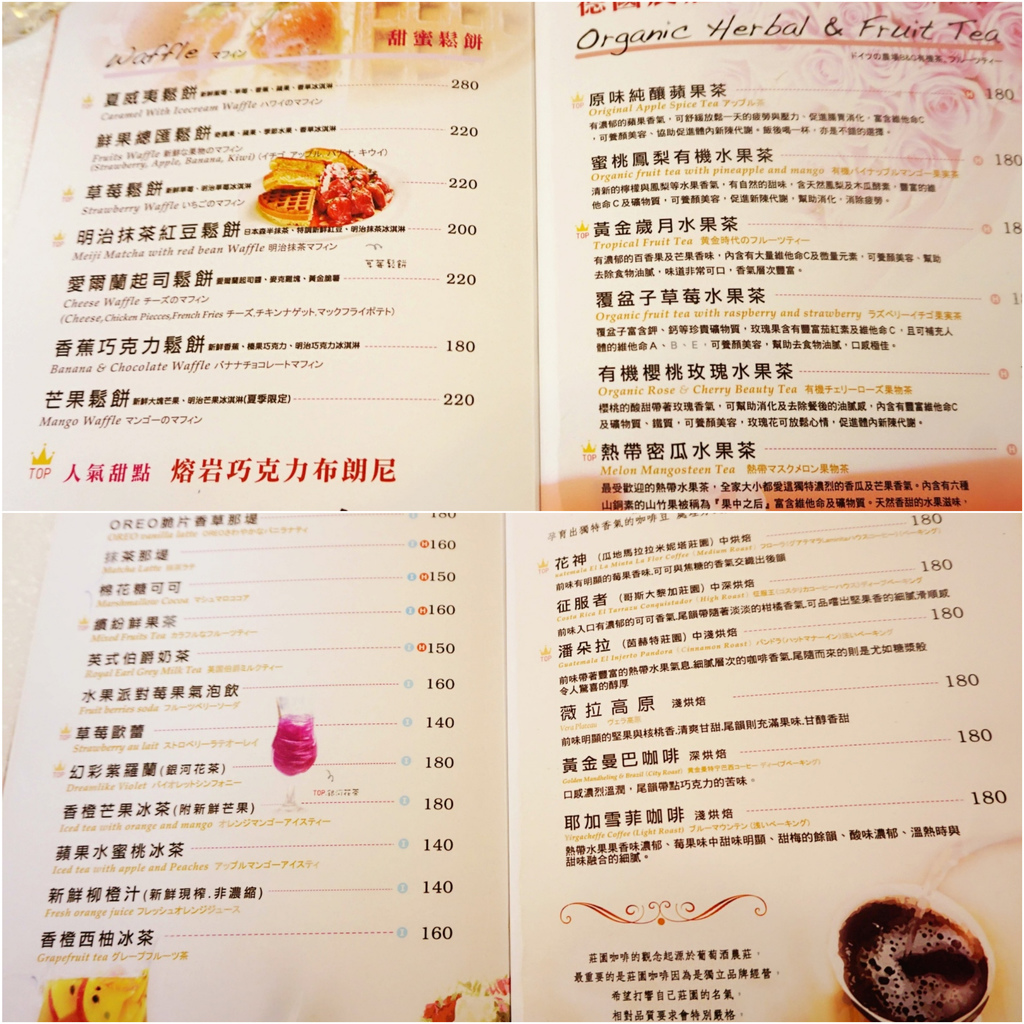 甜蜜鬆餅
Waffle マフィン
夏威夷鬆餅 280
Caramel With Icecream Waffle ハワイのマフィン
鮮果總匯鬆餅 奇異果、蘋果、季節水果、香草冰淇淋 220
Fruits Waffle 新鮮な果物のマフィン
(Strawberry, Apple, Banana, Kiwi) (イチゴ, アップル, バナナ, キウイ)
草莓鬆餅 新鮮草莓、明治草莓冰淇淋 220
Strawberry Waffle いちごのマフィン
明治抹茶紅豆鬆餅 日本森半抹茶、特調新鮮紅豆、明治抹茶冰淇淋 200
Meiji Matcha with red bean Waffle 明治抹茶マフィン
愛爾蘭起司鬆餅 愛爾蘭起司醬、麥克雞塊、黃金脆薯 220
Cheese Waffle チーズのマフィン
(Cheese,Chicken Piecces,French Fries チーズ.チキンナゲット.マックフライポテト)
香蕉巧克力鬆餅 新鮮香蕉、榛果巧克力、明治巧克力冰淇淋 180
Banana & Chocolate Waffle バナナチョコレートマフィン
芒果鬆餅 新鮮大塊芒果、明治芒果冰淇淋(夏季限定) 220
Mango Waffle マンゴーのマフィン
TOP 人氣甜點 熔岩巧克力布朗尼
Organic Herbal & Fruit Tea
TOP 原味純釀蘋果茶 H 180
Original Apple Spice Tea アップル茶
有濃郁的蘋果香氣,可舒緩放鬆一天的疲勞與壓力、促進腸胃消化,富含維他命C
,可養顏美容、協助促進體內新陳代謝。飯後喝一杯,亦是不錯的選擇。
蜜桃鳳梨有機水果茶 H 180
Organic fruit tea with pineapple and mango 有機パイナップルマンゴー果実茶
清新的檸檬與鳳梨等水果香氣,有自然的甜味,含天然鳳梨及木瓜酵素,豐富的維
他命C及礦物質,可養顏美容,促進新陳代謝,幫助消化,消除疲勞。
TOP 黃金歲月水果茶 H
Tropical Fruit Tea 黃金時代のフルーツティー
有濃郁的百香果及芒果香味,內含有大量維他命C及微量元素,可養顏美容、幫助
去除食物油膩,味道非常可口,香氣層次豐富。
覆盆子草莓水果茶 H
Organic fruit tea with raspberry and strawberry ラズベリーイチゴ果実茶
覆盆子富含鉀、鈣等珍貴礦物質,玫瑰果含有豐富茄紅素及維他命C,且可補充人
體的維他命A、B、E,可養顏美容,幫助去食物油膩,口感極佳。
有機櫻桃玫瑰水果茶 H
Organic Rose & Cherry Beauty Tea 有機チェリーローズ果物茶
櫻桃的酸甜帶著玫瑰香氣,可幫助消化及去除餐後的油膩感,內含有豐富維他命C
及礦物質、鐵質,可養顏美容,玫瑰花可放鬆心情,促進體內新陳代謝。
TOP 熱帶密瓜水果茶 H
Melon Mangosteen Tea 熱帶マスクメロン果物茶
最受歡迎的熱帶水果茶,全家大小都愛這獨特濃烈的香瓜及芒果香氣。內含有六種
山銅素的山竹果被稱為『果中之后』富含維他命及礦物質。天然香甜的水果滋味,
OREO脆片香草那堤 180
OREO vanilla latte
抹茶那堤 I H 160
Matcha Latte 抹茶ラテ
棉花糖可可 I H 150
Marshmallow Cocoa マシュマロココア
繽紛鮮果茶 I H 160
Mixed Fruits Tea カラフルなフルーツティー
英式伯爵奶茶 I H 150
Royal Earl Grey Milk Tea 英国伯爵ミルクティー
水果派對莓果氣泡飲 I 160
Fruit berries soda フルーツベリーソーダ
草莓歐蕾 I 140
Strawberry au lait ストロベリーラテオーレイ
幻彩紫羅蘭(銀河花茶) I 180
Dreamlike Violet バイオレットシンフォニー
香橙芒果冰茶(附新鮮芒果) I 180
Iced tea with orange and mango オレンジマンゴーアイスティー
蘋果水蜜桃冰茶 I 140
Iced tea with apple and Peaches アップルマンゴーアイスティ
新鮮柳橙汁(新鮮現榨.非濃縮) I 140
Fresh orange juice フレッシュオレンジジュース
香橙西柚冰茶 I 160
Grapefruit tea グレープフルーツ茶
孕育出獨特香氣的咖啡豆
花神 (瓜地馬拉拉米妮塔莊園) 中烘焙 180
前味有明顯的莓果香味.可可與焦糖的香氣交織出後韻
征服者 (哥斯大黎加莊園) 中深烘焙 180
前味入口有濃郁的可可香氣.尾韻帶隨著淡淡的柑橘香氣.可品嚐出堅果香的細膩滑順感
潘朵拉 (茵赫特莊園) 中淺烘焙 180
前味帶著豐富的熱帶水果氣息.細膩層次的咖啡香氣.尾隨而來的則是尤如糖漿般
令人驚喜的醇厚
薇拉高原 淺烘焙 180
前味明顯的堅果與核桃香.清爽甘甜.尾韻則充滿果味.甘醇香甜
黃金曼巴咖啡 深烘焙 180
Golden Mandheling & Brazil (City Roast)
口感濃烈溫潤,尾韻帶點巧克力的苦味。
耶加雪菲咖啡 淺烘焙 180
Yirgacheffe Coffee (Light Roast) ブルーマウンテン (浅いベーキング)
熱帶水果果香味濃郁、莓果味中甜味明顯、甜梅的餘韻、酸味濃郁、溫熱時與
甜味融合的細膩。
莊園咖啡的觀念起源於葡萄酒農莊,
最重要的是莊園咖啡因為是獨立品牌經營,
希望打響自己莊園的名氣,
相對品質要求會特別嚴格。